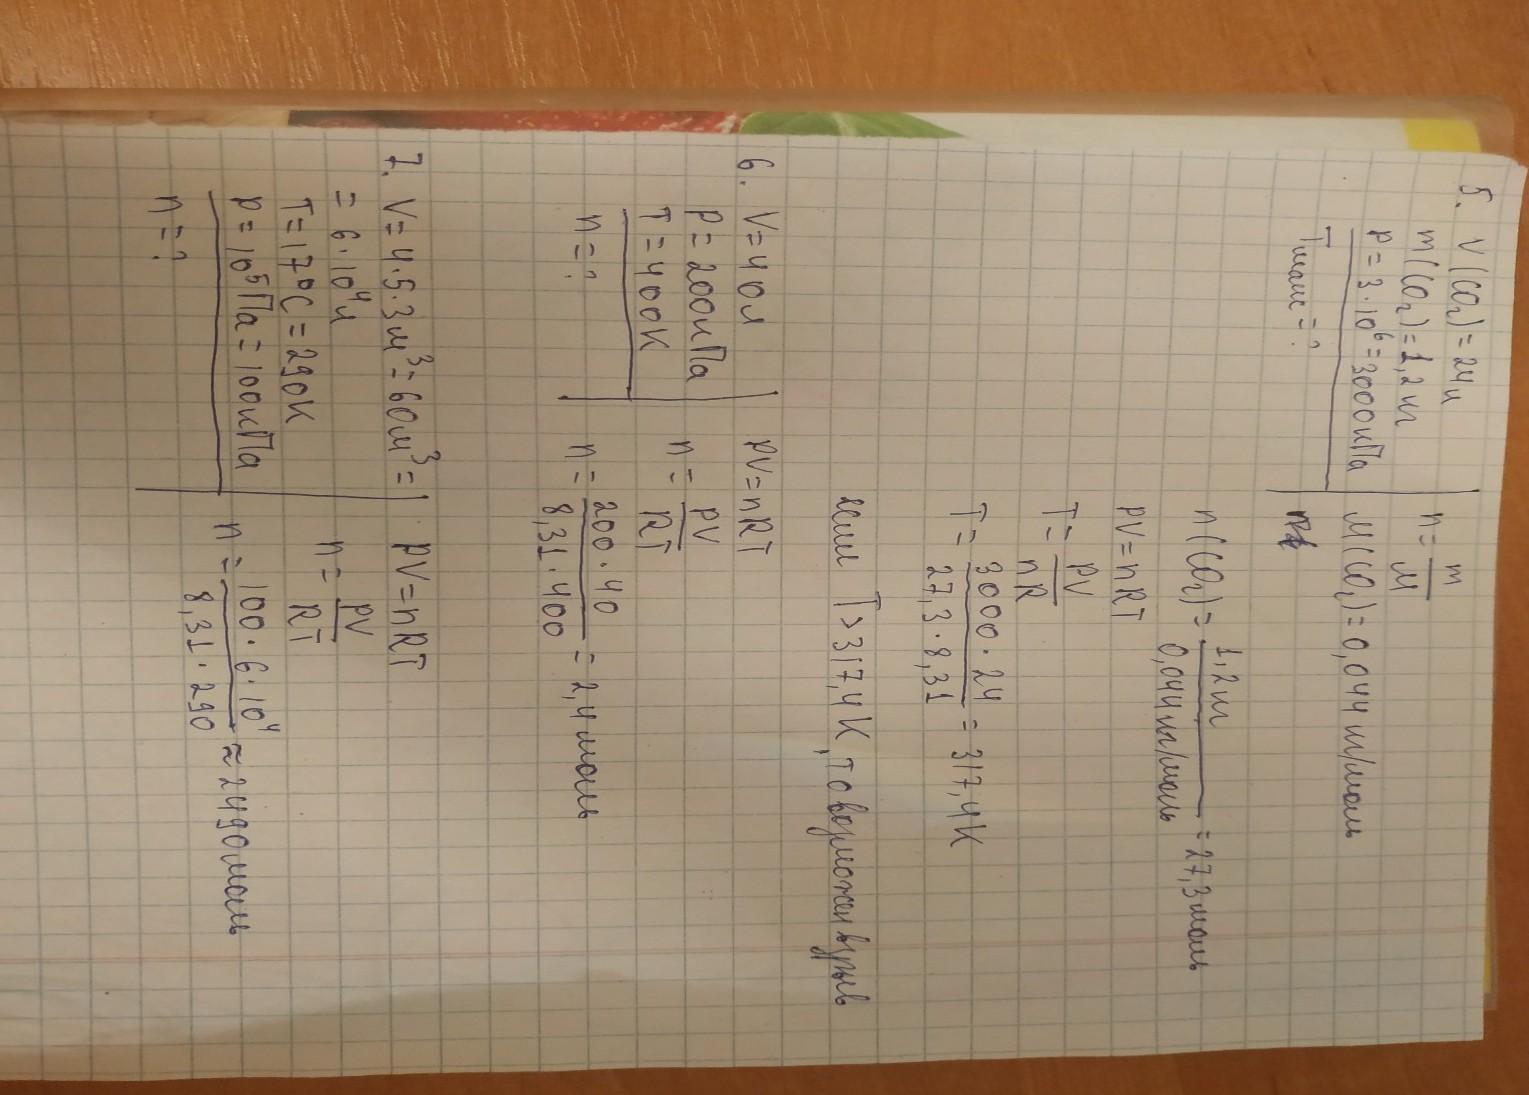 5. V(CO₂) = 24л
m(CO₂) = 1,2 кг
p = 3·10⁶ = 3000кПа
Tмакс = ?
n = m/M
M(CO₂) = 0,044 кг/моль
n(CO₂) = 1,2кг/0,044кг/моль = 27,3моль
pV = nRT
T = pV/nR
T = 3000·24/27,3·8,31 = 317,4K
если T>317,4K, то возможен взрыв
6. V = 40л
p = 200кПа
T = 400K
n = ?
pV = nRT
n = pV/RT
n = 200·40/8,31·400 = 2,4моль
7. V = 4·5·3м³ = 60м³ =
= 6·10⁴л
T = 17°C = 290K
p = 10⁵Па = 100кПа
n = ?
pV = nRT
n = pV/RT
n = 100·6·10⁴/8,31·290 ≈ 2490моль